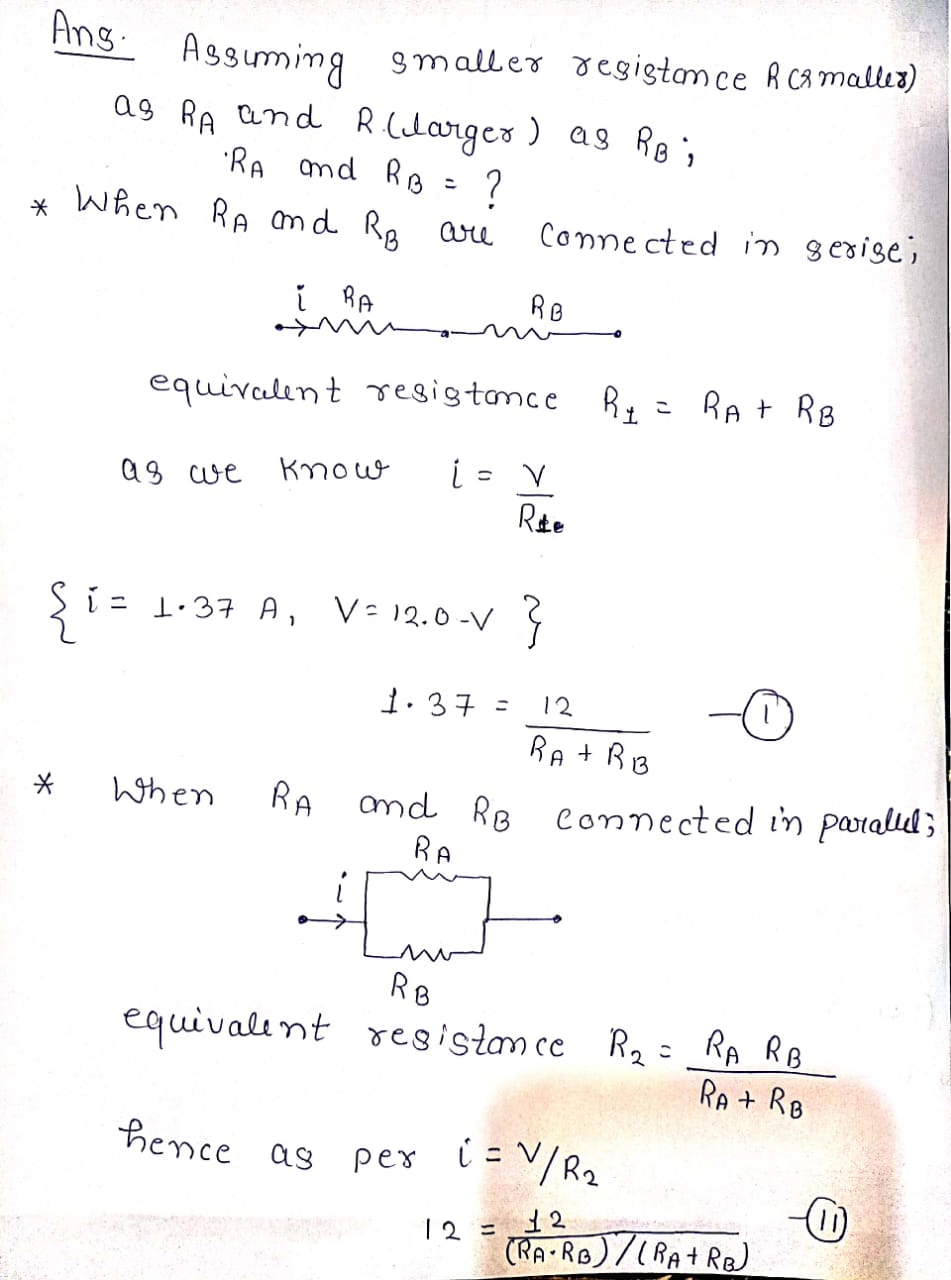 Ans. Assuming smaller resistance R(smaller)
as RA and R.(larger) as RB;
RA and RB = ?
* When RA and RB are connected in serise;
i RA RB
equivalent resistance R1 = RA + RB
as we know i = V
R1e
{ i = 1.37 A, V = 12.0-V }
1.37 = 12 -(I)
RA + RB
* When RA and RB connected in parallel;
RA
i
RB
equivalent resistance R2 = RA RB
RA + RB
hence as per i = V/R2
12 = 12 -(II)
(RA·RB)/(RA+RB)